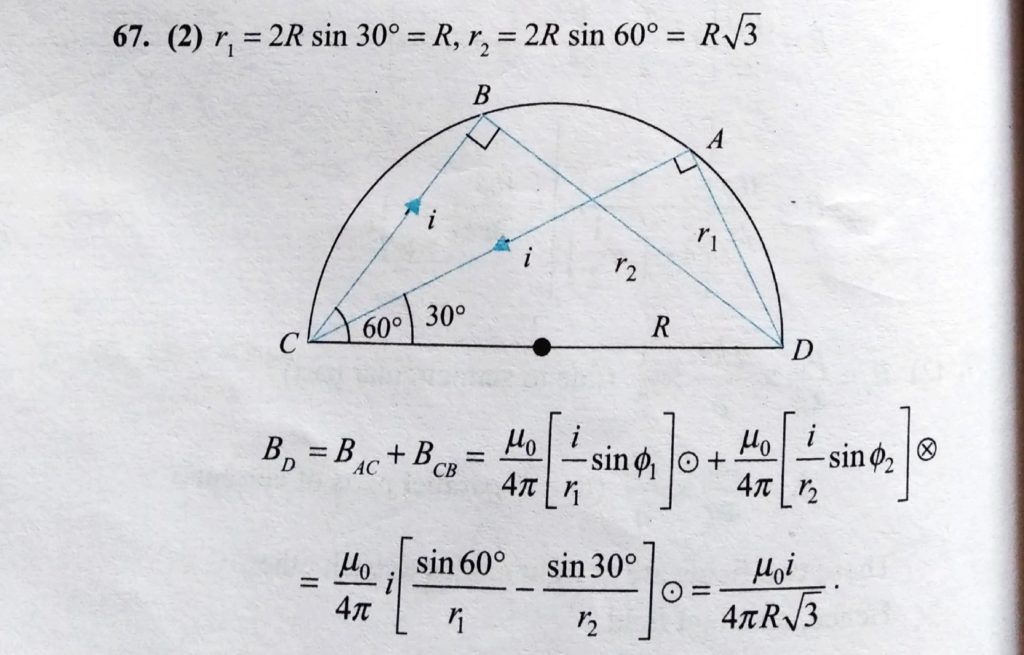 67. (2) r₁ = 2R sin 30° = R, r₂ = 2R sin 60° = R√3
B
A
i
i
r₁
r₂
60°
30°
R
C
D
B_D = B_AC + B_CB = μ₀/4π [i/r₁ sin ϕ₁] ⊙ + μ₀/4π [i/r₂ sin ϕ₂] ⊗
= μ₀/4π i [sin 60°/r₁ − sin 30°/r₂] ⊙ = μ₀i/4πR√3 .